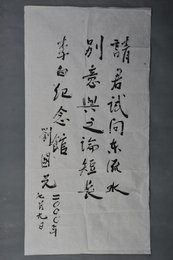 請君試問东流水
别意與之誰短長
李白纪念館
劉國元
二〇〇〇年
七月九日